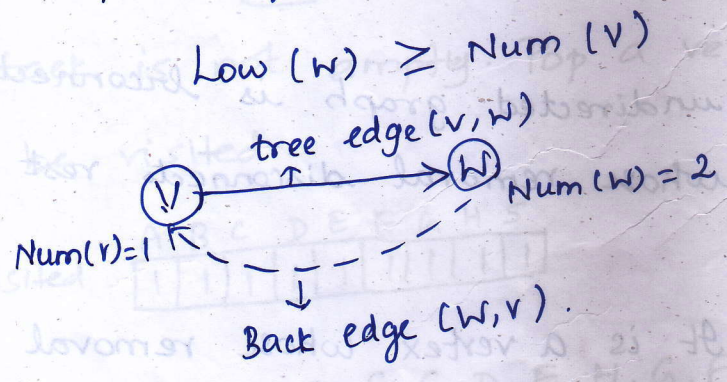 Low (W) ≥ Num (V)
tree edge (V, W)
V
W
Num (W) = 2
Num(V)=1
Back edge (W, V).